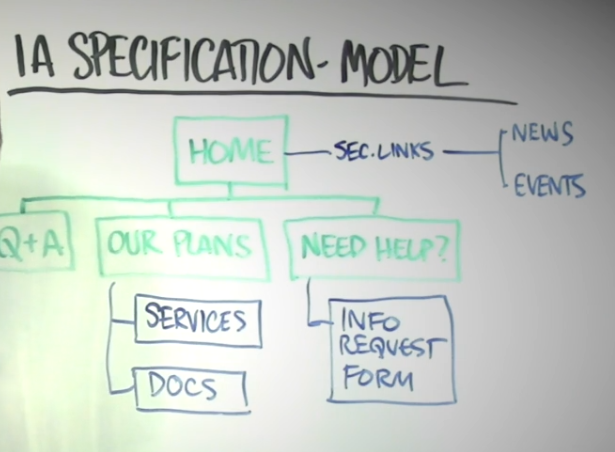 IA SPECIFICATION- MODEL
HOME
SEC.LINKS
NEWS
EVENTS
Q+A
OUR PLANS
NEED HELP?
SERVICES
DOCS
INFO
REQUEST
FORM